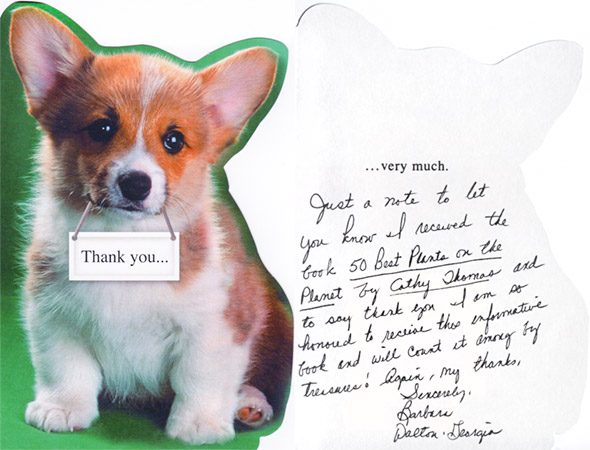 Thank you...
...very much.
Just a note to let
you know I received the
book 50 Best Plants on the
Planet by Cathy Thomas and
to say thank you. I am so
honored to receive this informative
book and will count it among my
treasures! Again, my thanks,
Sincerely,
Barbara
Dalton, Georgia